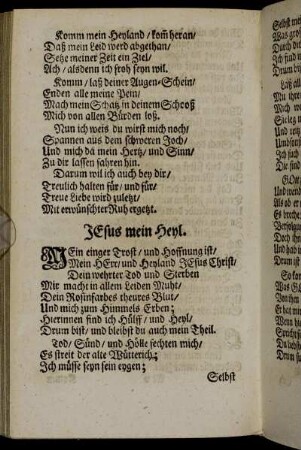 Komm mein Heyland / kom̃ heran /
Daß mein Leid werd abgethan /
Setze meiner Zeit ein Ziel /
Ach / alsdenn ich froh seyn wil.
Komm / laß deiner Augen-Schein /
Enden alle meine Pein /
Mach mein Schatz in deinem Schoß
Mich von allen Bürden loß.
Nun ich weis du wirst mich noch /
Spannen aus dem schweren Joch /
Und mich da mein Hertz / und Sinn /
Zu dir lassen fahren hin.
Darum wil ich auch bey dir /
Treulich halten für / und für /
Treue Liebe wird zuletzt /
Mit erwünschter Ruh ergetzt.
JEsus mein Heyl.
MEin einger Trost / und Hoffnung ist /
Mein HErr und Heyland JEsus Christ /
Dein wehrter Tod und Sterben
Mir macht in allem Leiden Muht /
Dein Rosinfarbes theures Blut /
Und mich zum Himmels Erben;
Hierinnen find ich Hülff / und Heyl /
Drum bist / und bleibst du auch mein Theil.
Tod / Sünd / und Hölle fechten mich /
Es streit der alte Wütterich;
Ich müsse seyn sein eygen;
Selbst